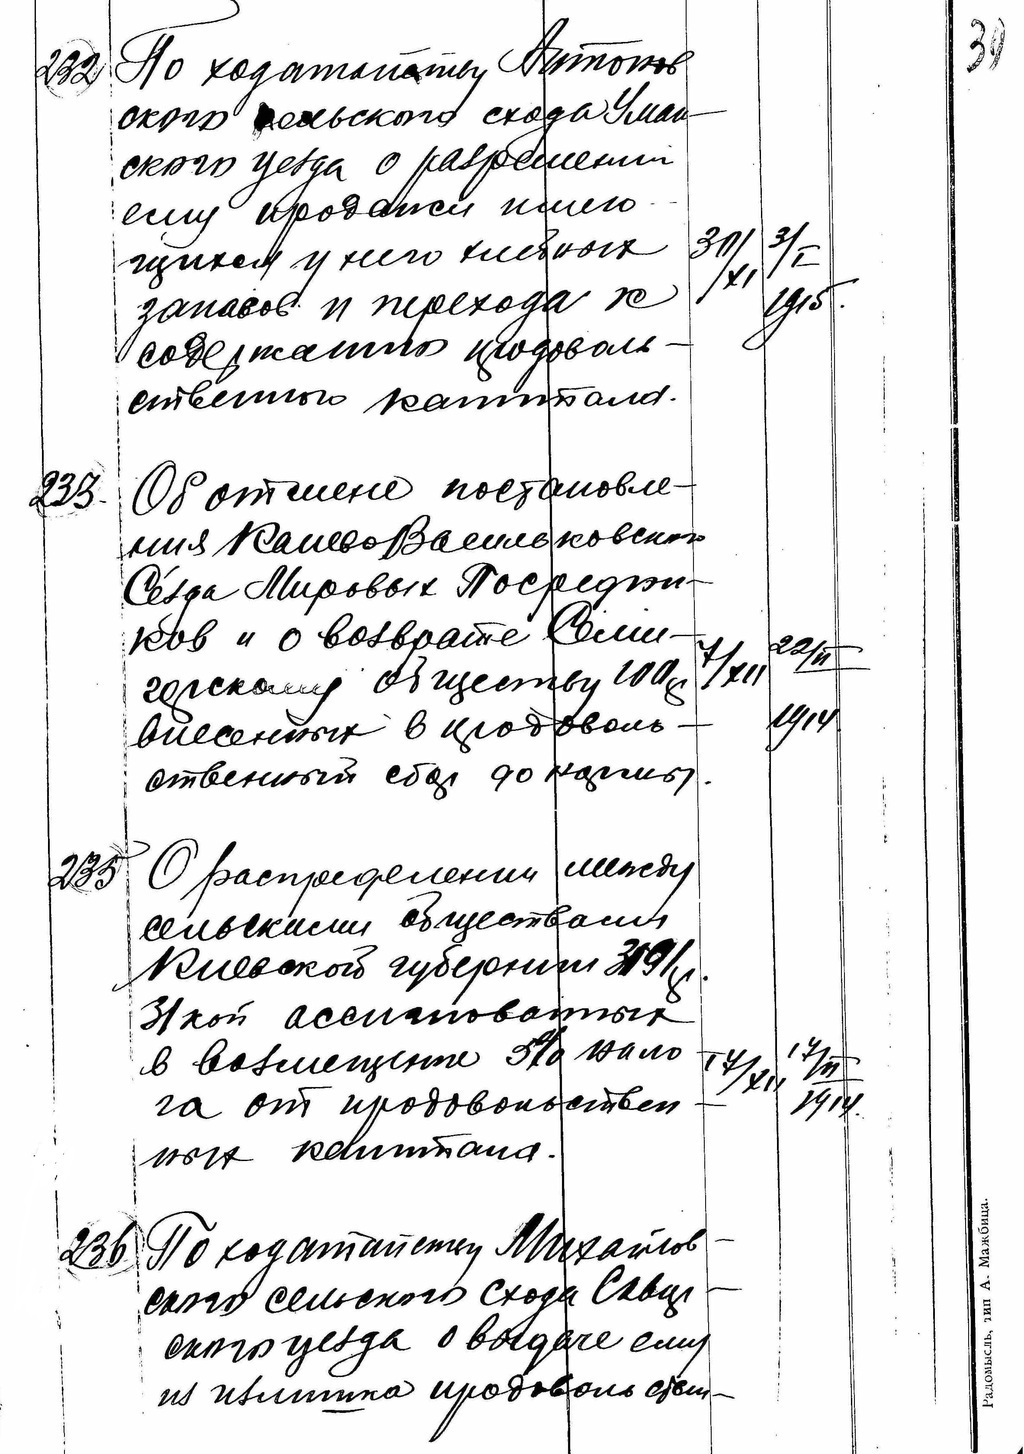 39
232 По ходатайству Антонов
ского сельского схода Уман-
ского уезда о разрешении
ему продажи имею-
щихся у него хлебных 30/XI 3/I
запасов и перехода к 1915.
содержанию продоволь-
ственного капитала.
233. Об отмене постановле-
ния КаневоВасильковского
Сезда Мировых Посредни-
ков и о возврате Семи- 7/XII 22/II
горскому обществу 100 р
внесенных в продоволь- 1914
ственный сбор до нормы.
235 О распределении между
сельскими обществами
Киевской губернии 319 р.
31 коп ассигнованных
в возмещение 5% нало 17/XII 17/II
га от продовольствен- 1914.
ных капитала.
236 По ходатайству Михайлов-
ского сельского схода Сквир-
ского уезда о выдаче ему
из излишка продовольствен-
Радомысль, тип А. Мажбица.